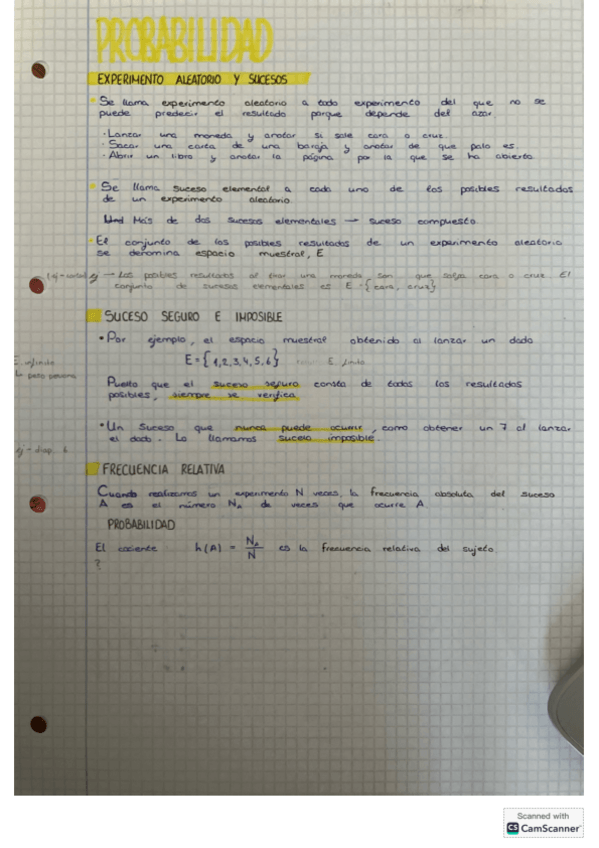 PROBABILIDAD
EXPERIMENTO ALEATORIO Y SUCESOS
Se llama experimento aleatorio a todo experimento del que no se
puede predecir el resultado porque depende del azar
· Lanzar una moneda y anotar si sale cara o cruz
· Sacar una carta de una baraja y anotar de que palo es
· Abrir un libro y anotar la página por la que se ha abierto
Se llama suceso elemental a cada uno de los posibles resultados
de un experimento aleatorio.
Más de dos sucesos elementales → suceso compuesto
• El conjunto de los posibles resultados de un experimento aleatorio
se denomina espacio muestral, E
ej → Los posibles resultados al tirar una moneda son que salga cara o cruz El
conjunto de sucesos elementales es E = {cara, cruz}
SUCESO SEGURO E IMPOSIBLE
• Por ejemplo, el espacio muestral obtenido al lanzar un dado
E. infinito
E = {1,2,3,4,5,6} E finito
↳ peso persona
Puesto que el suceso seguro consta de todos los resultados
posibles, siempre se verifica
• Un suceso que nunca puede ocurrir, como obtener un 7 al lanzar
el dado. Lo llamamos suceso imposible.
FRECUENCIA RELATIVA
Cuando realizamos un experimento N veces, la frecuencia absoluta del suceso
A es el número N_A de veces que ocurre A.
PROBABILIDAD
El cociente h(A) = N_A/N es la frecuencia relativa del sujeto
?
Scanned with
CS CamScanner